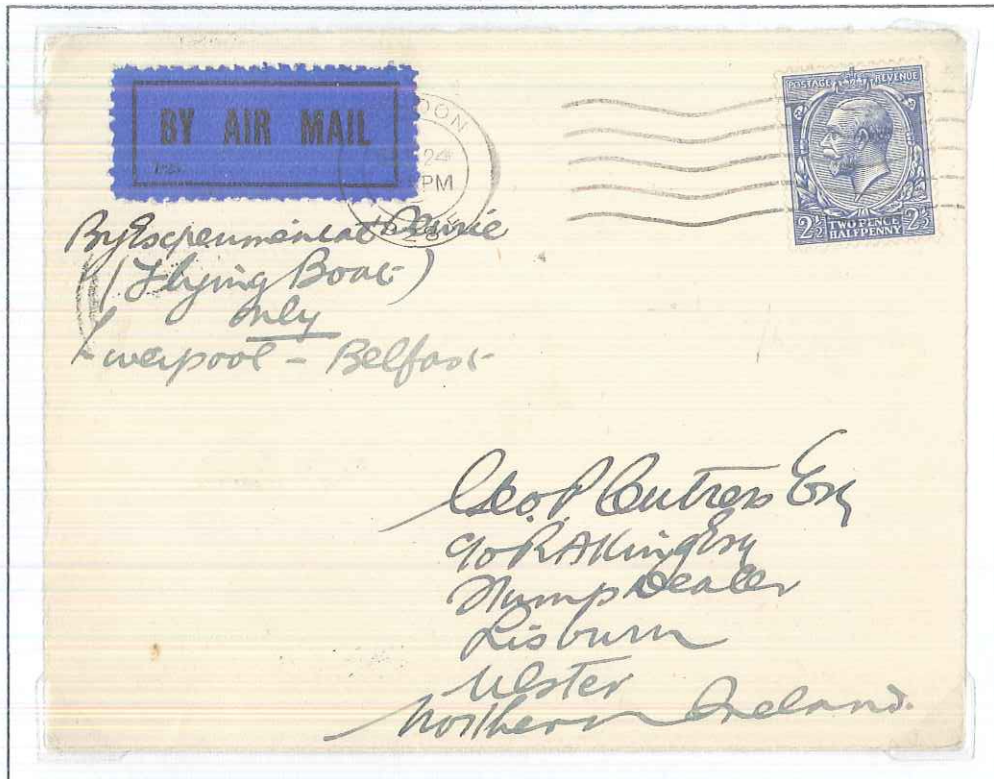 BY AIR MAIL
POSTAGE REVENUE
2½ TWO PENCE HALFPENNY 2½
24
PM
28
By Experimental
(Flying Boat)
only
Liverpool - Belfast
Geo. P. Esq
c/o R A King Esq
Stamp Dealer
Lisburn
Ulster
Northern Ireland.